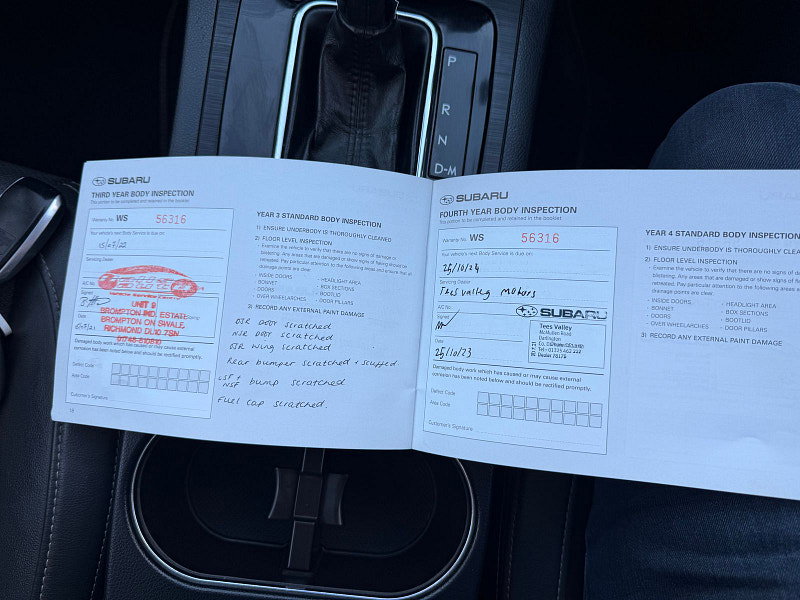 P
R
N
D-M
SUBARU
THIRD YEAR BODY INSPECTION
This portion to be completed and retained in the booklet
Warranty No. WS 56316
Your vehicle's next Body Service is due on:
Servicing Dealer
A/C No
Signed
Vehicle Service Centre
UNIT 9
BROMPTON IND. ESTATE
BROMPTON ON SWALE
RICHMOND DL10 7SN
01748-510810
Date
Damaged body work which has caused or may cause external
corrosion has been noted below and should be rectified promptly.
Defect Code
Area Code
Customer's Signature
18
YEAR 3 STANDARD BODY INSPECTION
1) ENSURE UNDERBODY IS THOROUGHLY CLEANED
2) FLOOR LEVEL INSPECTION
- Examine the vehicle to verify that there are no signs of damage or
blistering. Any areas that are damaged or show signs of having been
repaired. Pay particular attention to the following areas and ensure that all
damage points are clear.
- INSIDE DOORS
- BONNET
- DOORS
- OVER WHEELARCHES
- HEADLIGHT AREA
- BOX SECTIONS
- BOOTLID
- DOOR PILLARS
3) RECORD ANY EXTERNAL PAINT DAMAGE
door scratched
door scratched
wing scratched
Rear bumper scratched + scuffed
NSF bump scratched
Fuel cap scratched.
SUBARU
FOURTH YEAR BODY INSPECTION
This portion to be completed and retained in the booklet
Warranty No. WS 56316
Your vehicle's next Body Service is due on:
25/10/24
Servicing Dealer
Tees valley motors
A/C No
Signed
SUBARU
Tees Valley
McMullen Road
Darlington
Date
25/10/23
Damaged body work which has caused or may cause external
corrosion has been noted below and should be rectified promptly.
Defect Code
Area Code
Customer's Signature
YEAR 4 STANDARD BODY INSPECTION
1) ENSURE UNDERBODY IS THOROUGHLY CLEA
2) FLOOR LEVEL INSPECTION
- Examine the vehicle to verify that there are no signs of da
blistering. Any areas that are damaged or show signs of
repaired. Pay particular attention to the following areas an
damage points are clear.
- INSIDE DOORS
- BONNET
- DOORS
- OVER WHEELARCHES
- HEADLIGHT AREA
- BOX SECTIONS
- BOOTLID
- DOOR PILLARS
3) RECORD ANY EXTERNAL PAINT DAMAGE